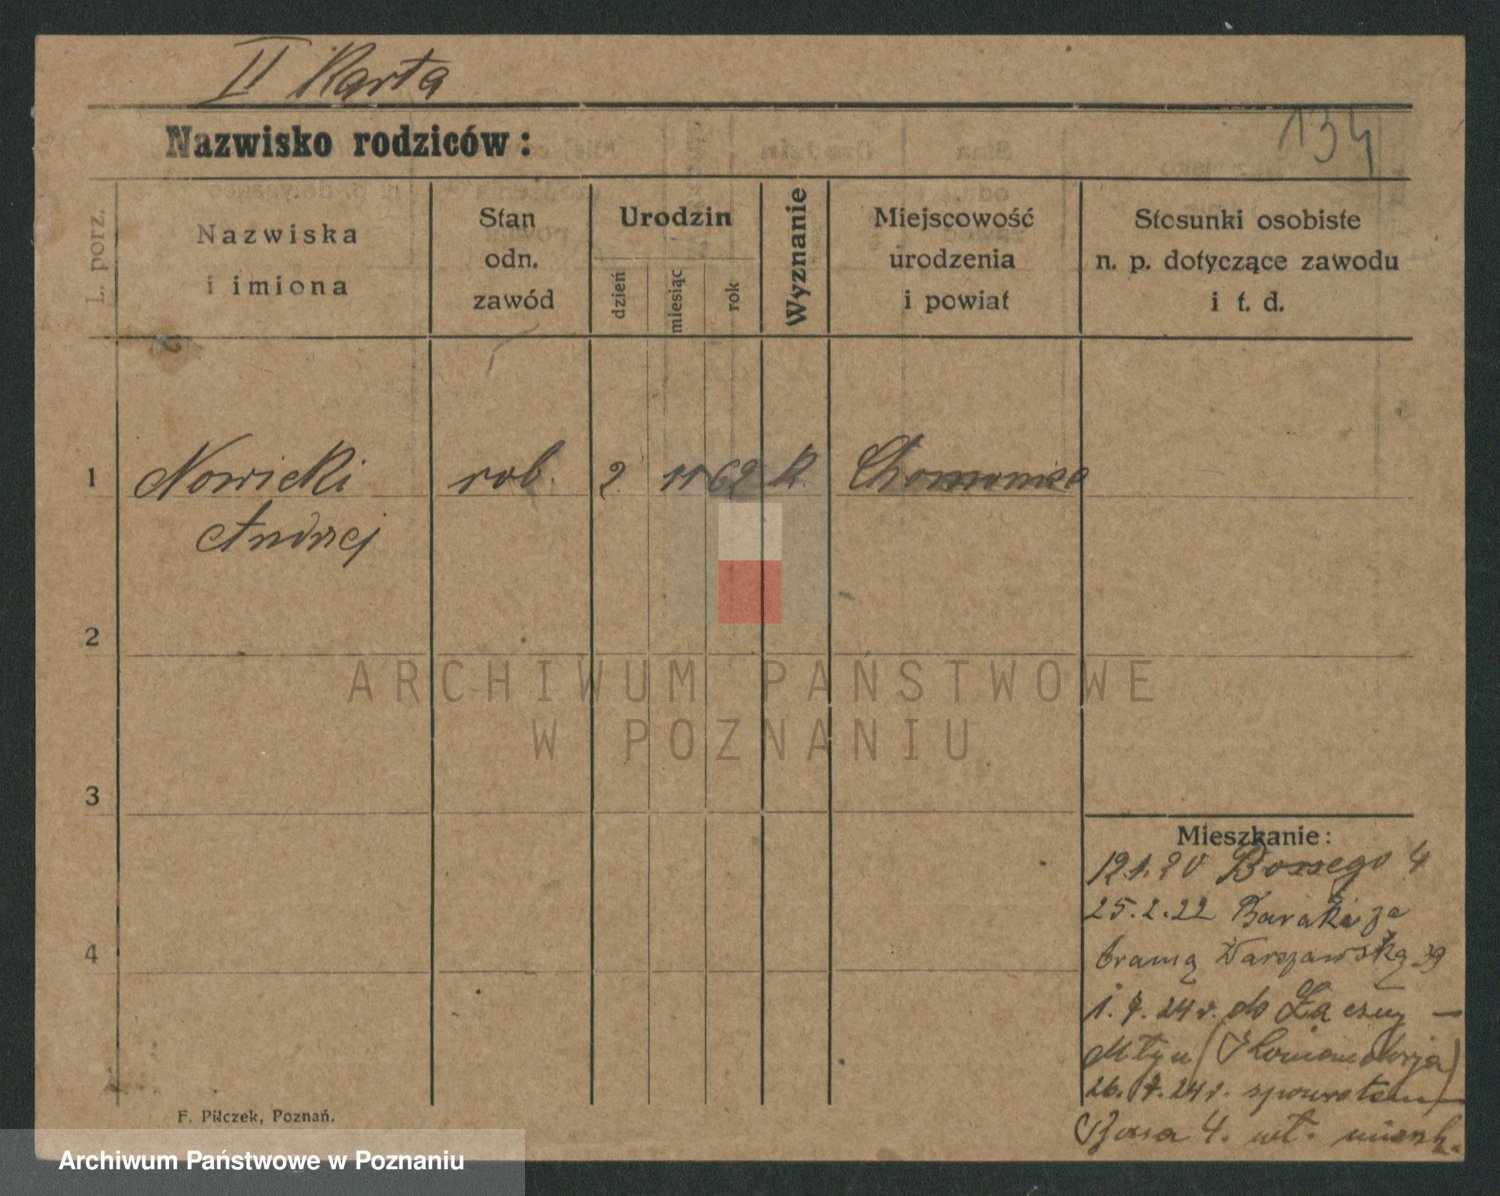 II Karta
Nazwisko rodziców:
134
L. porz.
Nazwiska
i imiona
Stan
odn.
zawód
Urodzin
dzień
miesiąc
rok
Wyznanie
Miejscowość
urodzenia
i powiat
Stosunki osobiste
n. p. dotyczące zawodu
i t. d.
1 Nowicki rob. 2 11 62 k.
Andrzej
2
ARCHIWUM PAŃSTWOWE
W POZNANIU
3
Mieszkanie:
12.1.20 4
25.2.22 Baraki za
4
bramą Warszawską 39
1.7.24 r. do
Młyn
26.7.24 r. spowrotem
4. wł. mieszk.
F. Pilczek, Poznań.
Archiwum Państwowe w Poznaniu